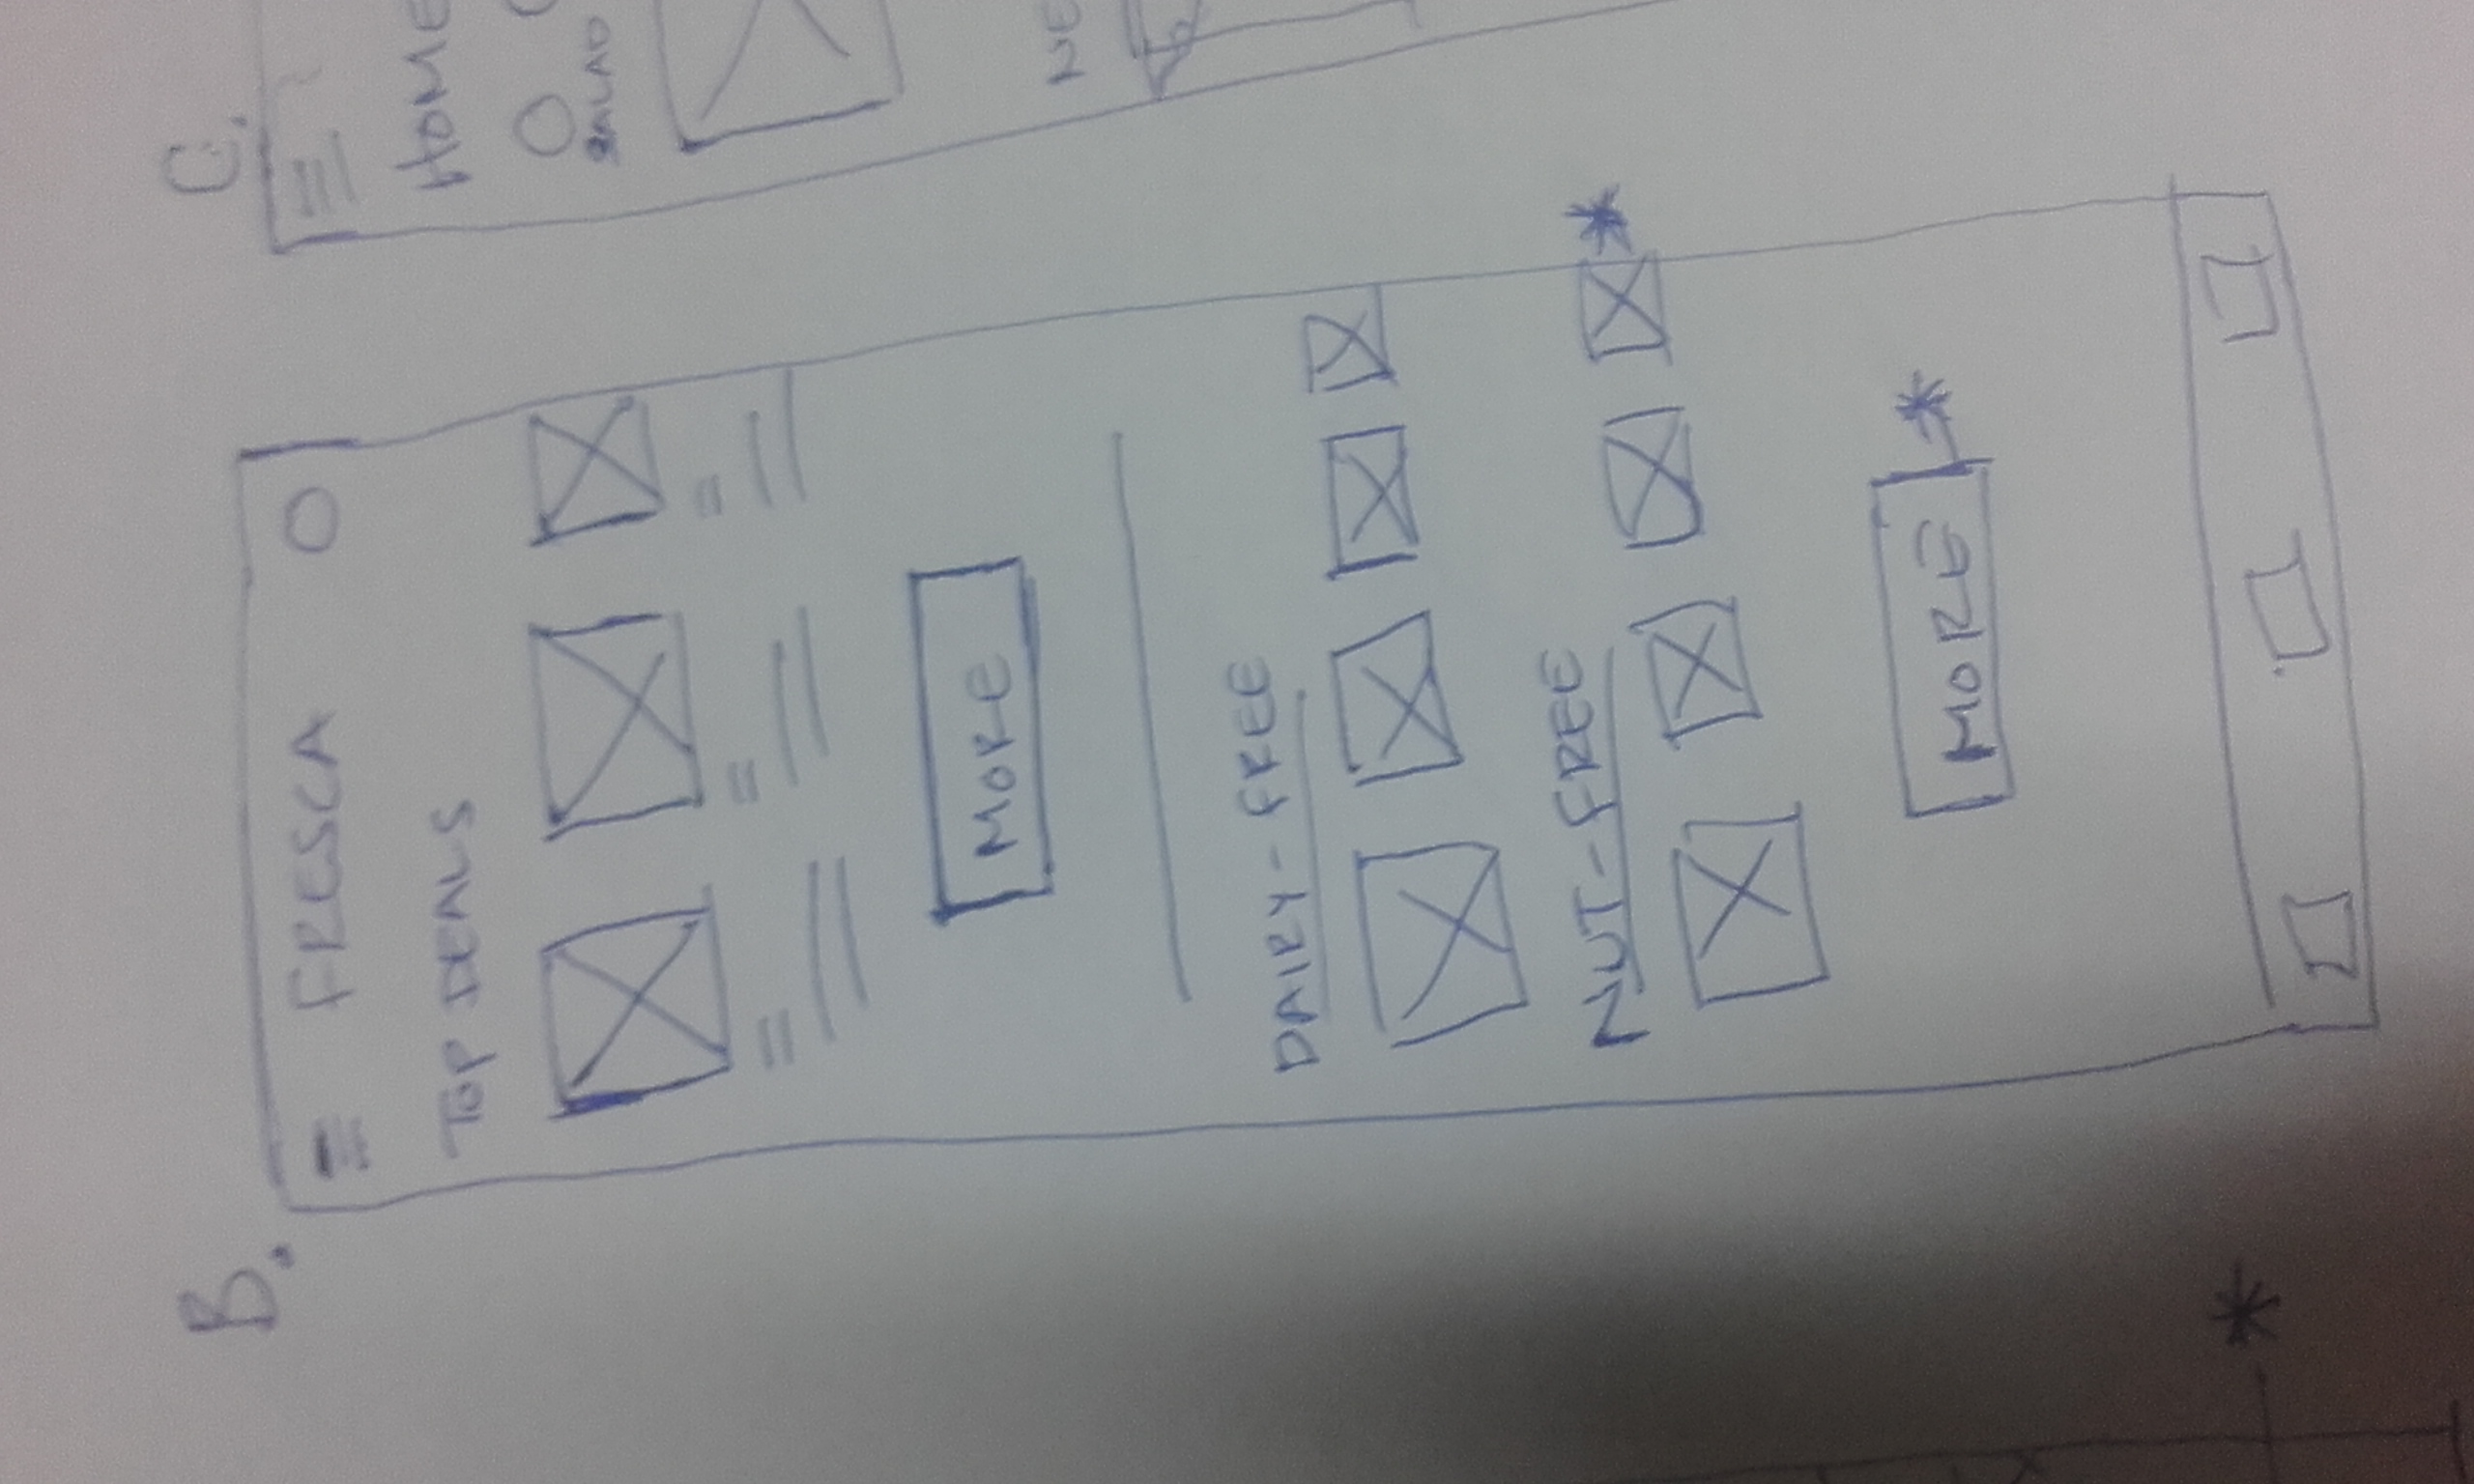 B.
FRESCA
TOP DEALS
MORE
DAIRY-FREE
NUT-FREE
*
MORE *
*
C.
HOME
SALAD
NE